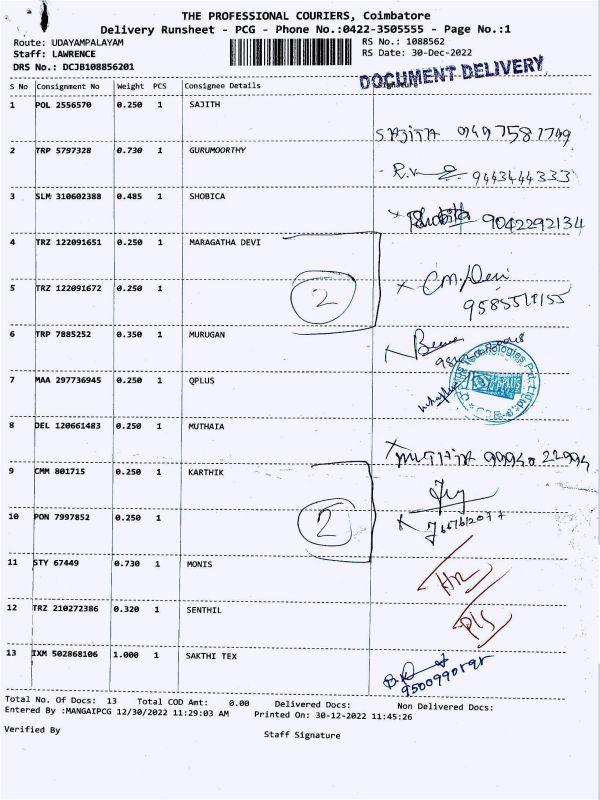 THE PROFESSIONAL COURIERS, Coimbatore
Delivery Runsheet - PCG - Phone No.:0422-3505555 - Page No.:1
Route: UDAYAMPALAYAM RS No.: 1088562
Staff: LAWRENCE RS Date: 30-Dec-2022
DRS No.: DCJB108856201
DOCUMENT DELIVERY
S No Consignment No Weight PCS Consignee Details Signature
1 POL 2556570 0.250 1 SAJITH
SAJITH
2 TRP 5797328 0.730 1 GURUMOORTHY
R.K 9443444333
3 SLM 310602388 0.485 1 SHOBICA
Shobita 9042292134
4 TRZ 122091651 0.250 1 MARAGATHA DEVI
5 TRZ 122091672 0.250 1
2
CM/Devi
6 TRP 7885252 0.350 1 MURUGAN
7 MAA 297736945 0.250 1 QPLUS
Technologies Pvt. Ltd.
8 DEL 120661483 0.250 1 MUTHAIA
MUTHIA 99940 22994
9 CMM 801715 0.250 1 KARTHIK
10 PON 7997852 0.250 1
2
11 STY 67449 0.730 1 MONIS
12 TRZ 210272386 0.320 1 SENTHIL
13 IXM 502868106 1.000 1 SAKTHI TEX
Total No. Of Docs: 13 Total COD Amt: 0.00 Delivered Docs: Non Delivered Docs:
Entered By :MANGAIPCG 12/30/2022 11:29:03 AM Printed On: 30-12-2022 11:45:26
Verified By Staff Signature